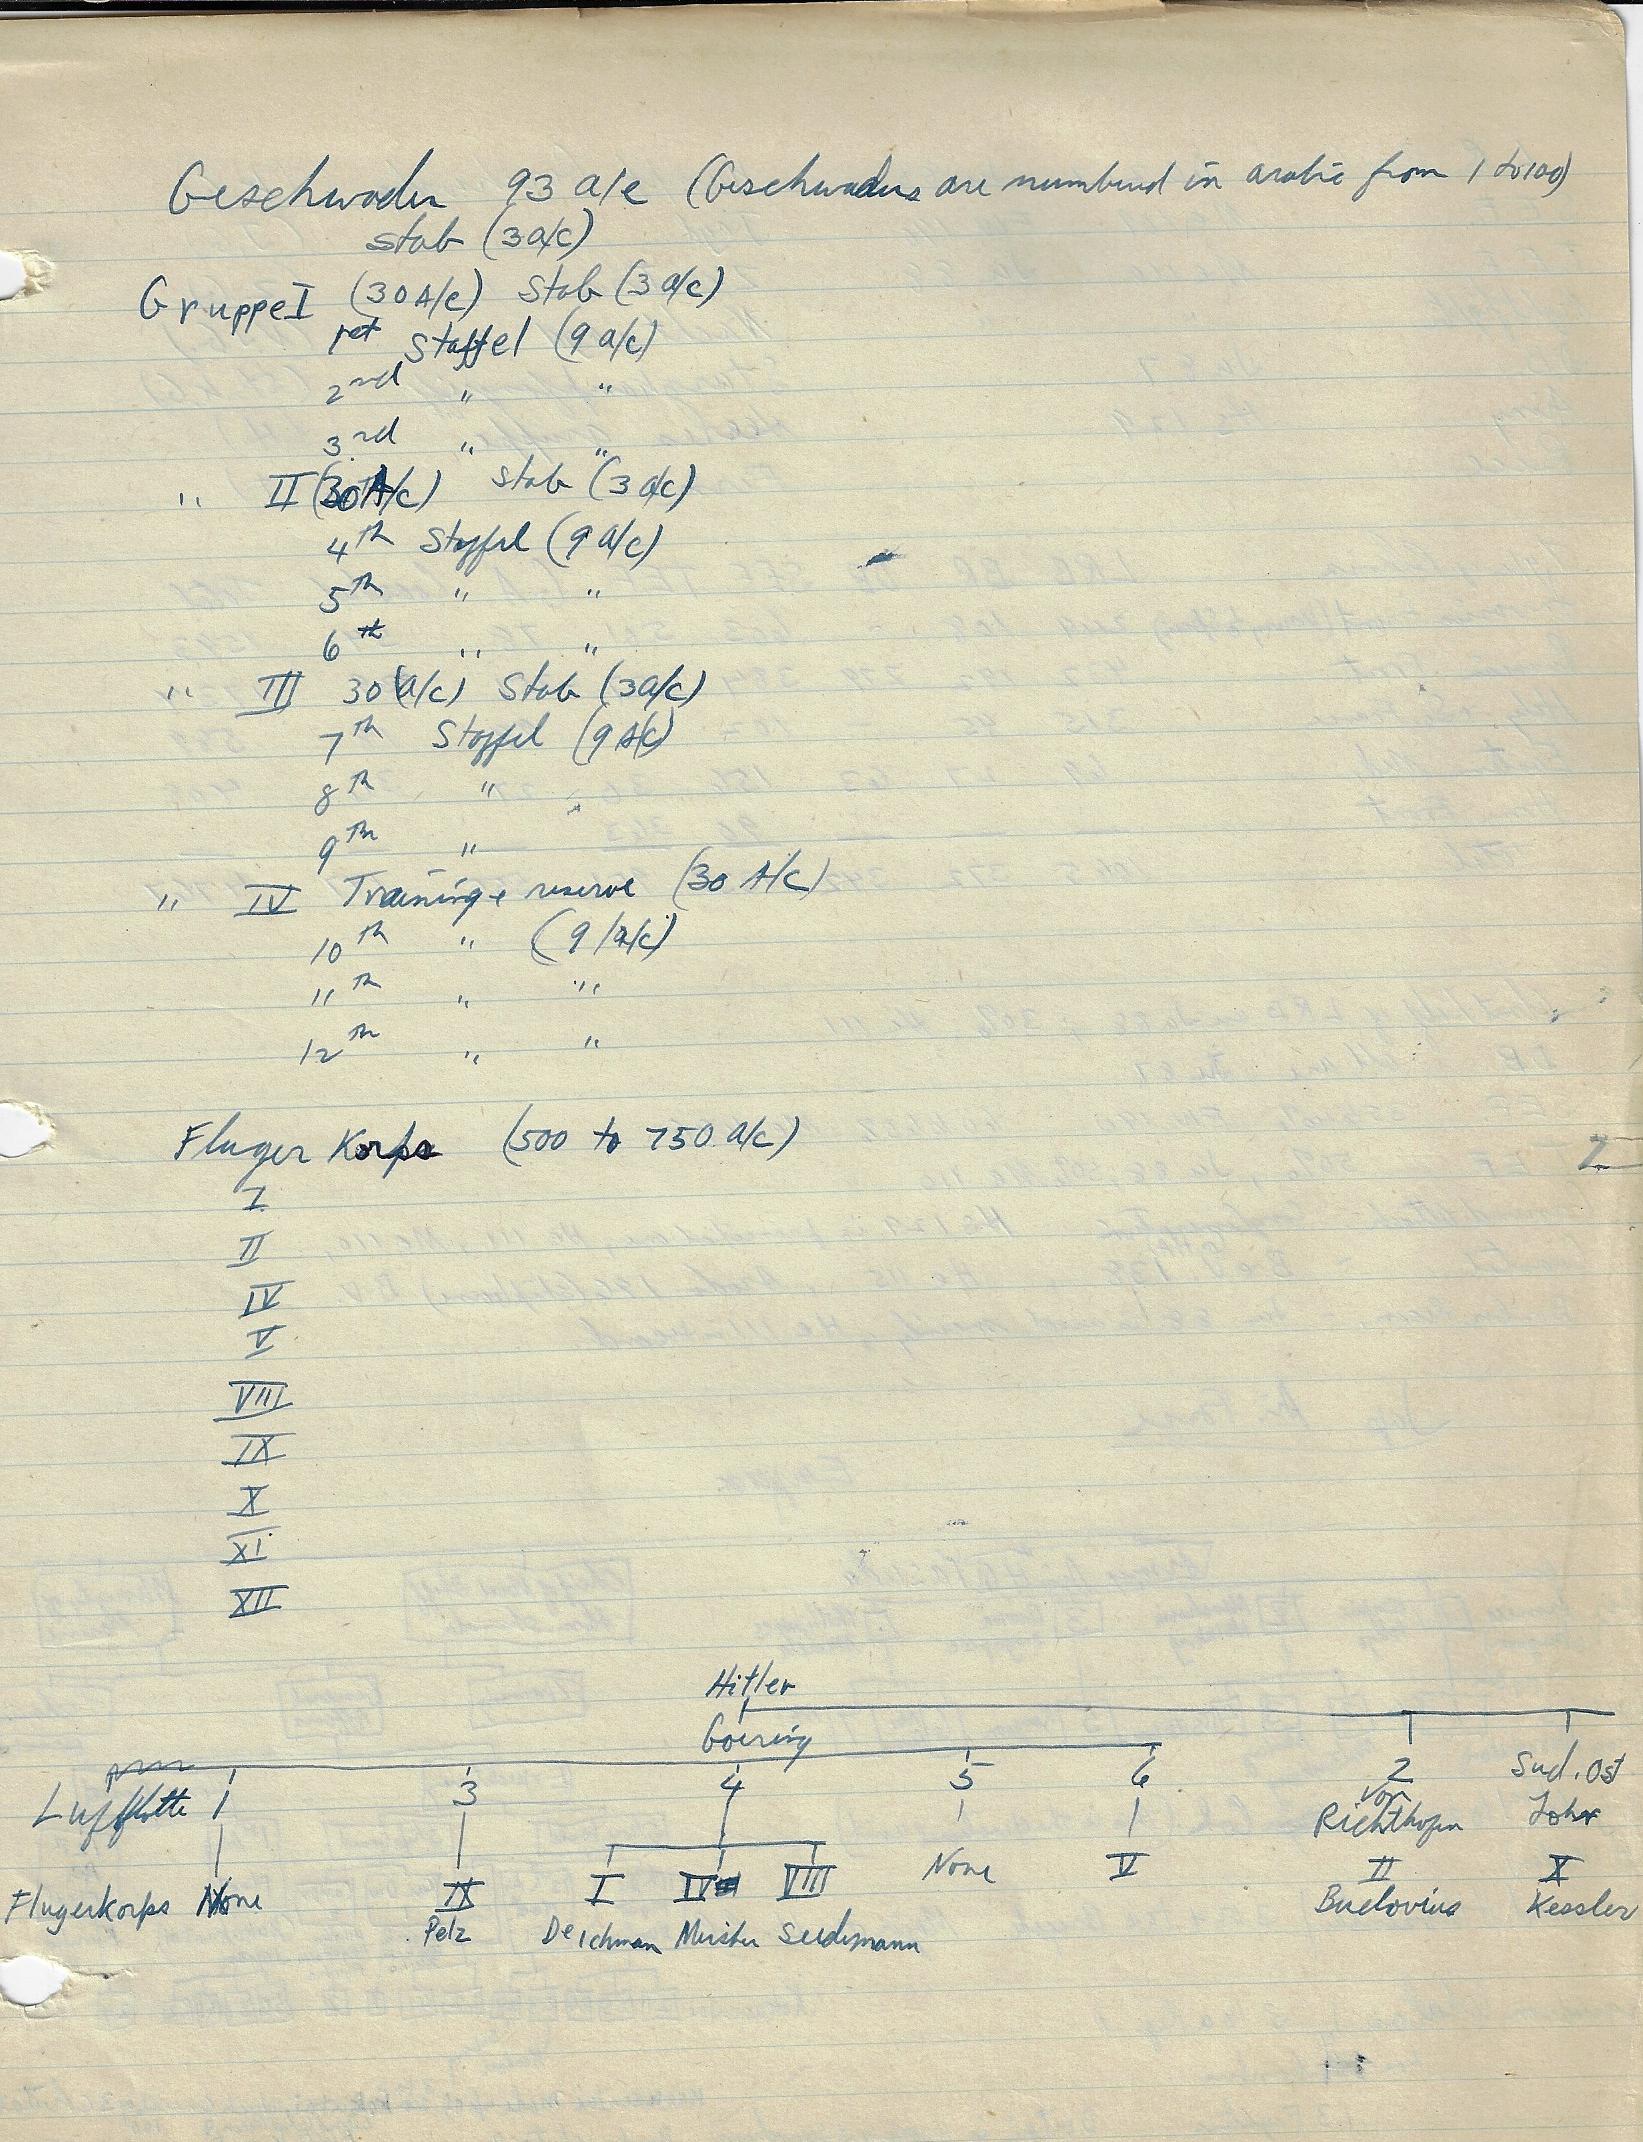 Geschwader 93 a/c (Geschwaders are numbered in arabic from 1 to 100)
Stab (3 a/c)
Gruppe I (30 A/c) Stab (3 a/c)
1st Staffel (9 a/c)
2nd " "
3rd " "
" II (30 A/c) Stab (3 a/c)
4th Staffel (9 a/c)
5th " "
6th " "
" III 30 (a/c) Stab (3 a/c)
7th Staffel (9 A/c)
8th "
9th "
" IV Training & reserve (30 A/c)
10th " (9 a/c)
11th " "
12th " "
Fluger Korps (500 to 750 a/c)
I
II
IV
V
VIII
IX
X
XI
XII
Hitler
Goering
Luftflotte 1 3 4 5 6 2 Sud. Ost
von
Richthofen Lohr
Flugerkorps None IX I IV VIII None V II X
Pelz Deichman Meister Seidemann Buelovius Kessler